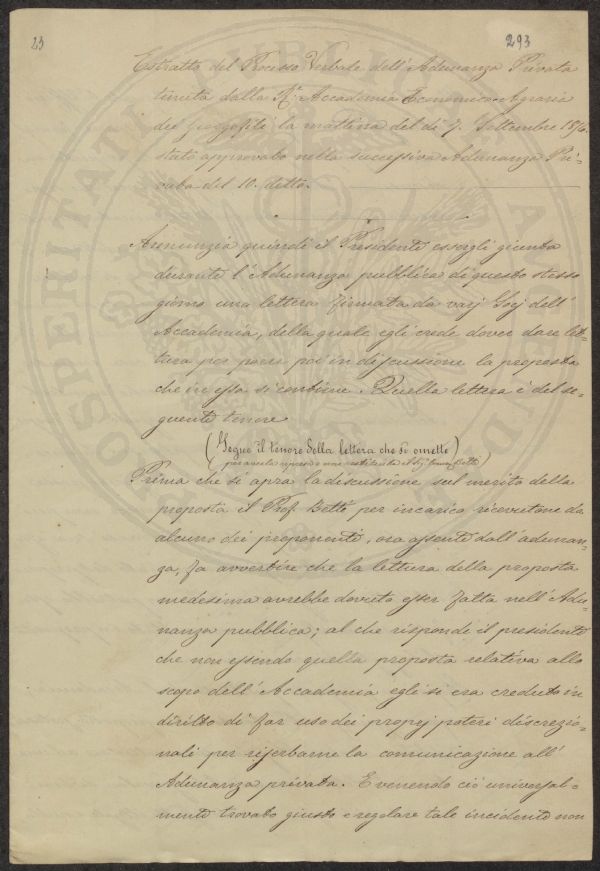 23
293
Estratto del Processo Verbale dell'Adunanza Privata
tenuta dalla R. Accademia Economico-Agraria
dei Georgofili la mattina del dì 7. Settembre
stato approvato nella successiva Adunanza Pri-
vata del 10. detto.
Annunzia quindi il Presidente essergli giunta
durante l'Adunanza pubblica di questo stesso
giorno una lettera firmata da varj Socj dell'
Accademia, della quale egli crede dover dare let-
tura per porre poi in discussione la proposta
che in essa si contiene. Quella lettera è del se-
guente tenore
(Segue il tenore della lettera che si omette)
Prima che si apra la discussione sul merito della
proposta il Prof. Betti per incarico ricevutone da
alcuno dei proponenti, ora assente dall'adunan-
za, fa avvertire che la lettura della proposta
medesima avrebbe dovuto esser fatta nell'Adu-
nanza pubblica; al che rispondi il presidente
che non essendo quella proposta relativa allo
scopo dell'Accademia egli si era creduto in
diritto di far uso dei proprj poteri discrezio-
nali per riserbarne la comunicazione all'
Adunanza privata. E venendo ciò universal-
mente trovato giusto e regolare tale incidente non
PROSPERITATI PUBLICAE